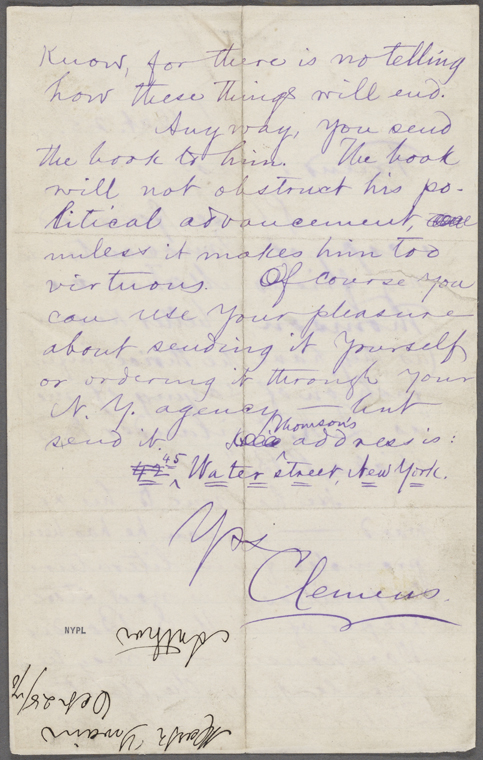 Know, for there is no telling
how these things will end.
Anyway, you send
the book to him. The book
will not obstruct his po-
litical advancement,
unless it makes him too
virtuous. Of course you
can use your pleasure
about sending it yourself
or ordering it through your
N. Y. agency — but
send it Thomson's address is:
42 45 Water street, New York.
Yrs
Clemens.
NYPL
Author
Oct 25/76
Mark Twain